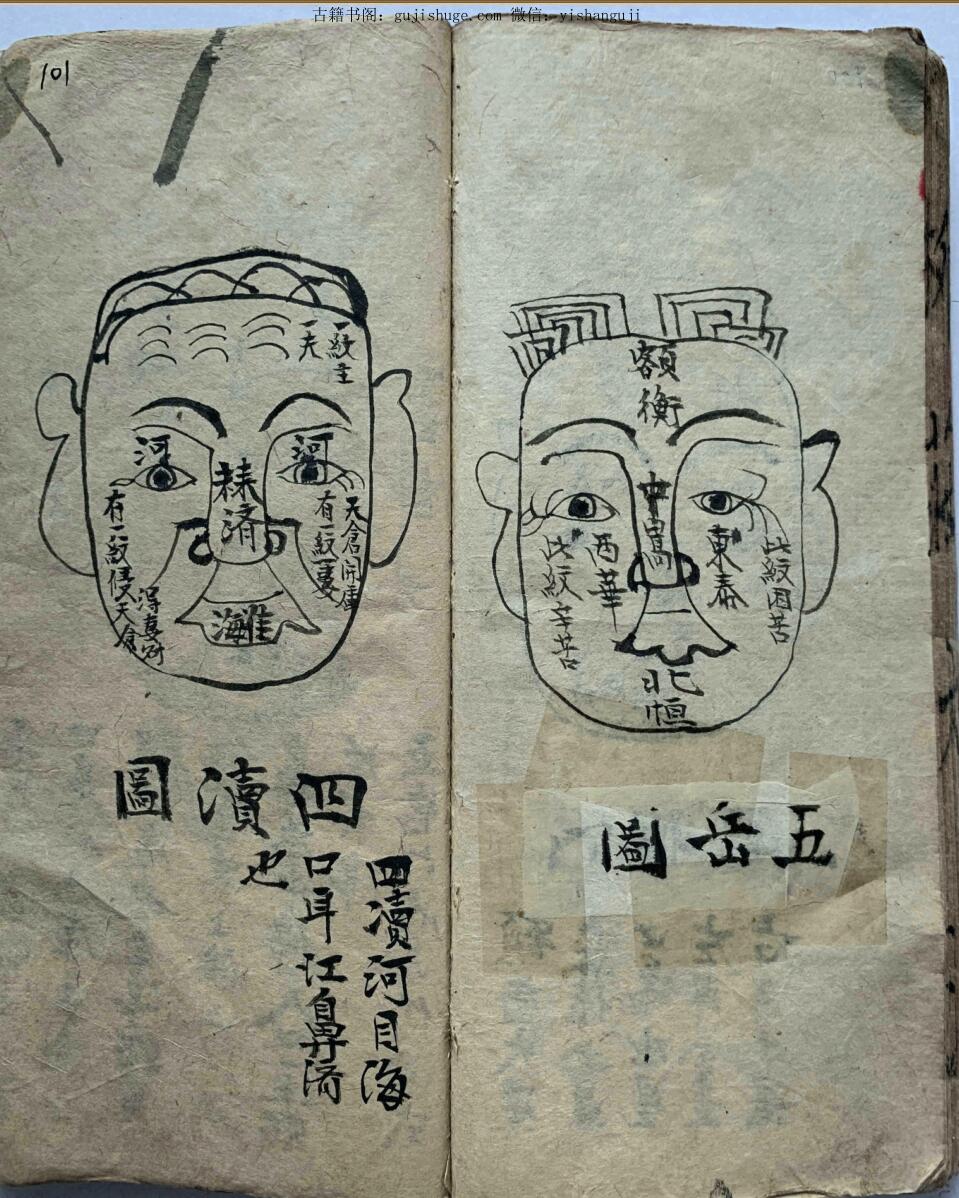 古籍书阁：gujishuge.com 微信：yishanguji
101
額衡
中嵩
東泰
西華
北恒
此紋困苦
此紋辛苦
五岳圖
一紋主
一夫
河
河
濟
天倉
有一紋
有一紋侵天倉
淮
海
四瀆圖
四瀆河目海
口耳江鼻済
也